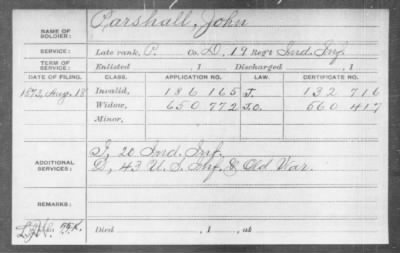 NAME OF SOLDIER: Parshall, John
SERVICE: Late rank, P. Co. D, 19 Reg't Ind. Inf.
TERM OF SERVICE: Enlisted , 1 Discharged , 1
DATE OF FILING. CLASS. APPLICATION NO. LAW. CERTIFICATE NO.
1873, Aug. 18 Invalid, 186 165 J. 132 716
Widow, 650 772 J.O. 660 417
Minor,
ADDITIONAL SERVICES: I, 20 Ind. Inf.
D, 43 U.S. Inf. & Old War.
REMARKS:
Died , 1 , at